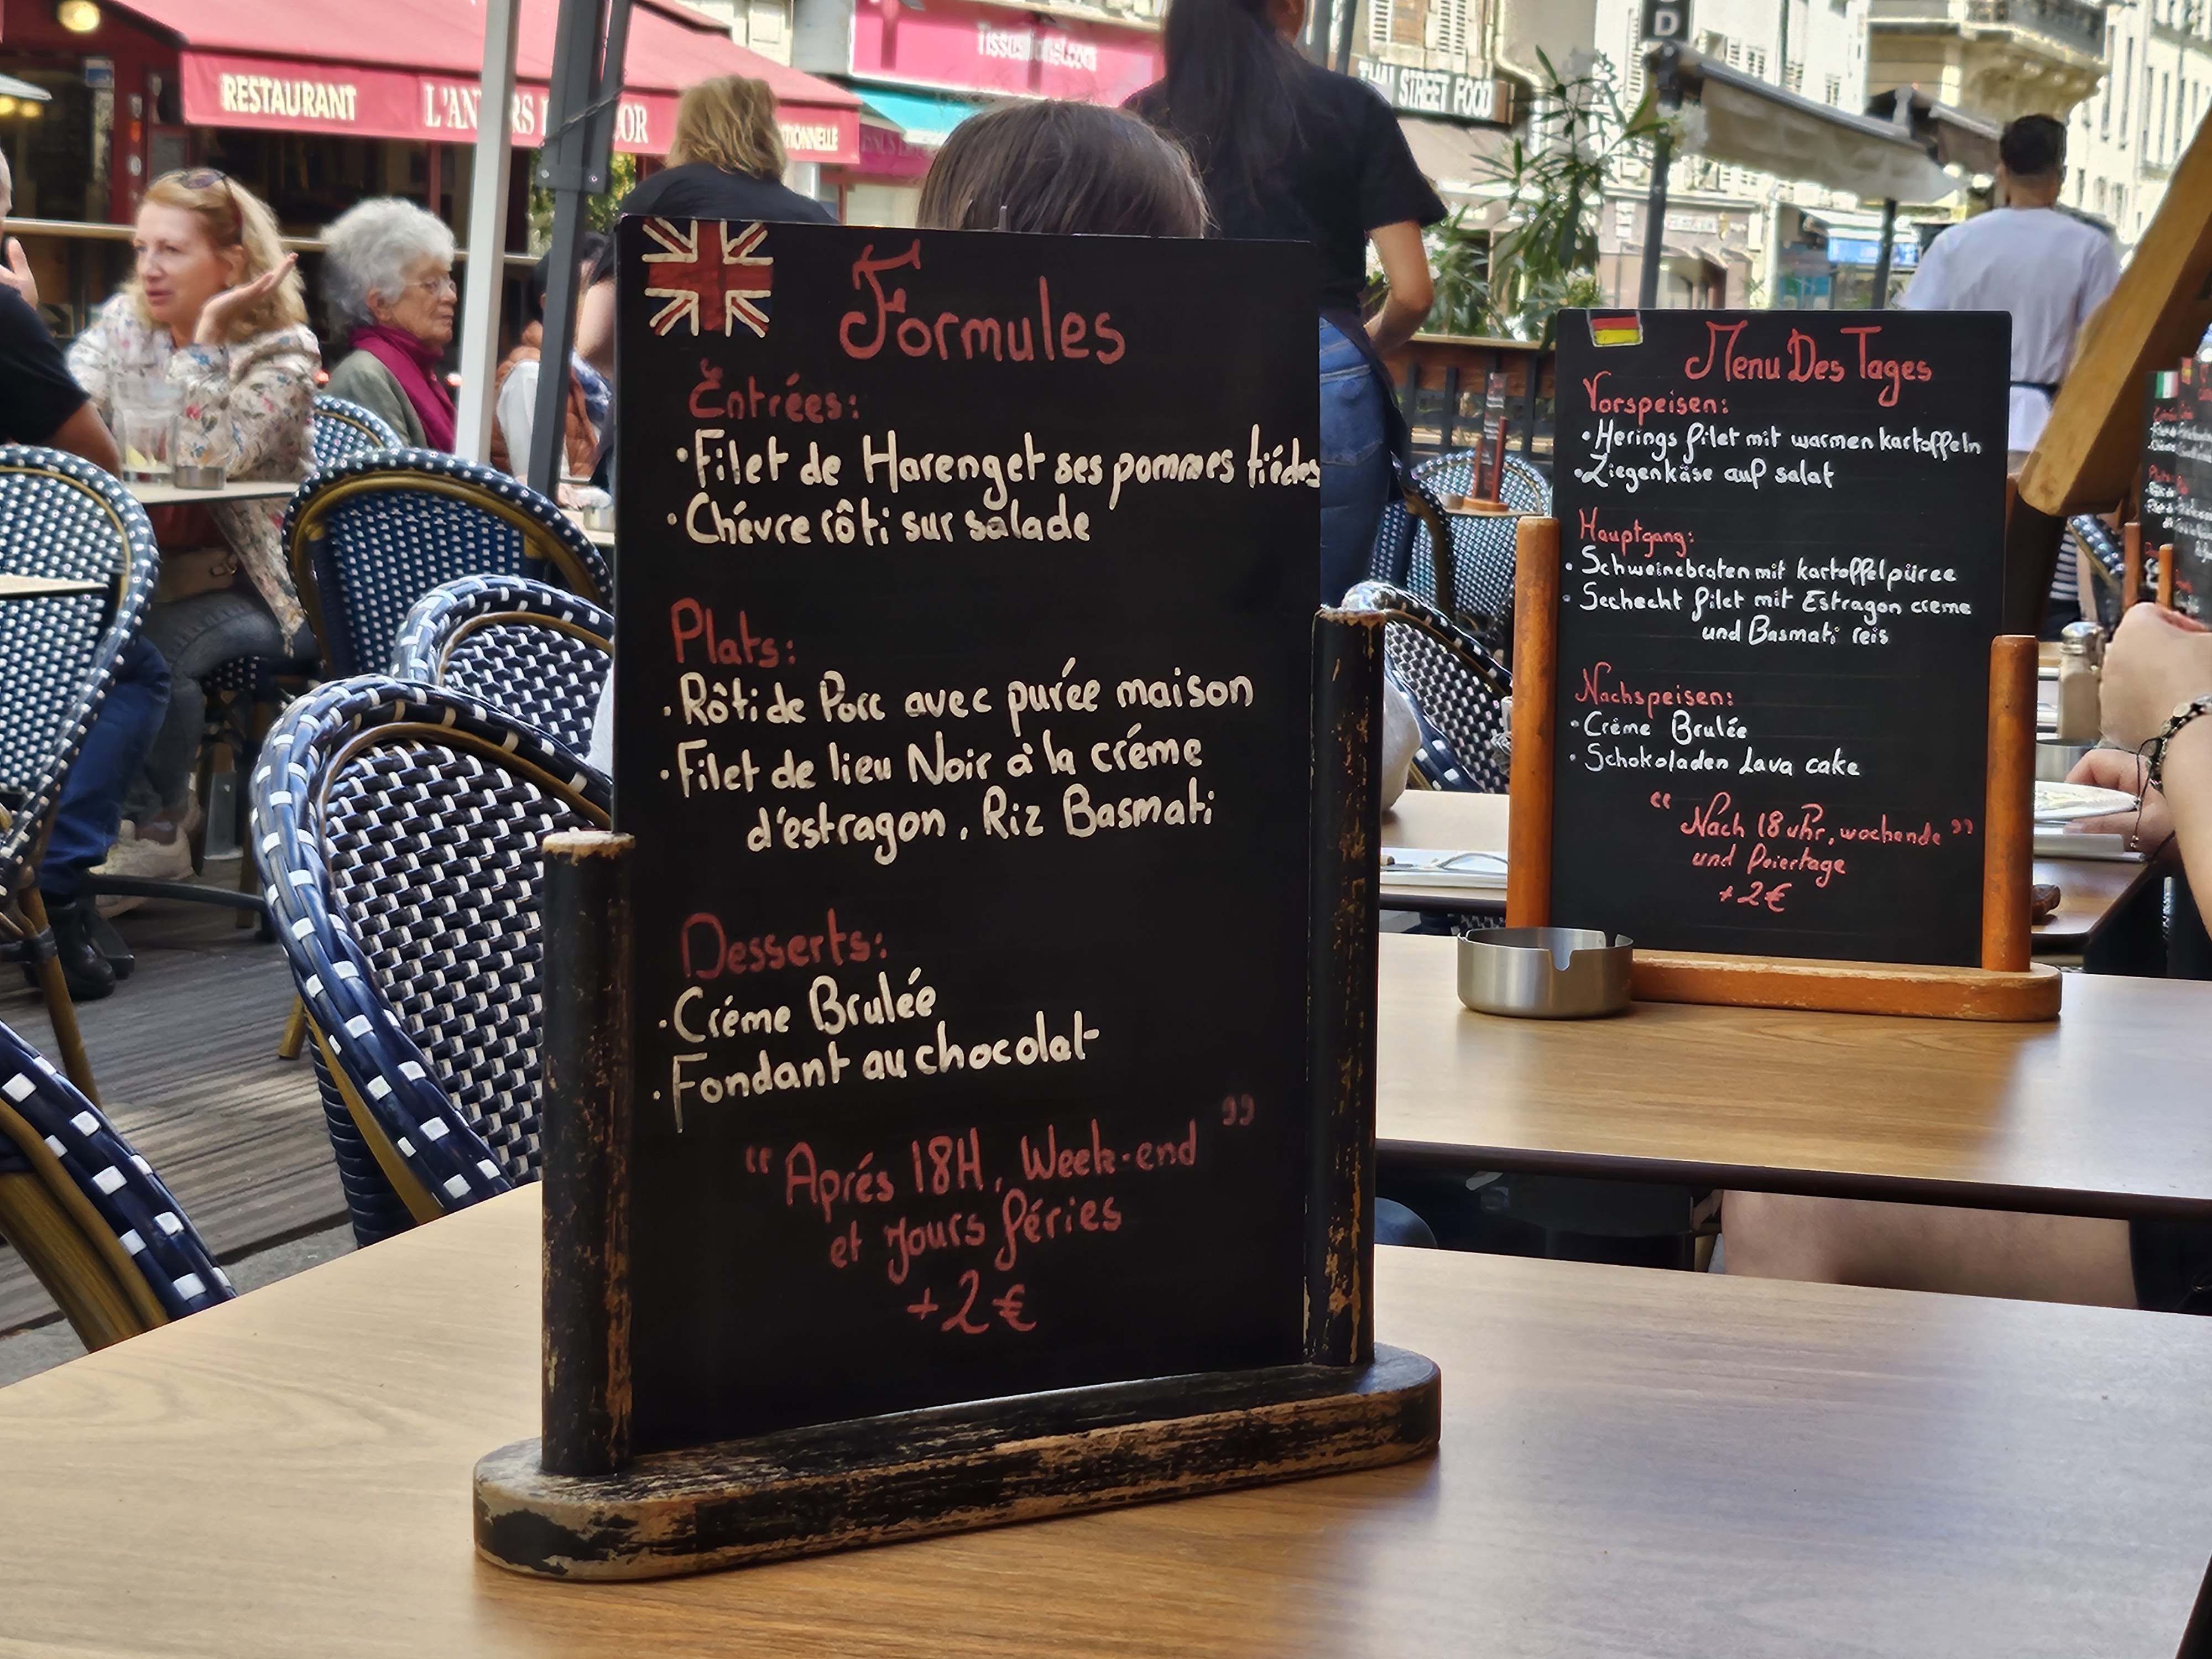 RESTAURANT
THAI STREET FOOD
Formules
Entrées:
•Filet de Harenget ses pommes tiédes
•Chévre rôti sur salade
Plats:
•Rôti de Porc avec purée maison
•Filet de lieu Noir à la créme
d'estragon, Riz Basmati
Desserts:
•Créme Brulée
•Fondant au chocolat
"Aprés 18H, Week-end"
et Jours fériés
+2€
Menu Des Tages
Vorspeisen:
•Herings filet mit warmen kartoffeln
•Ziegenkäse auf salat
Hauptgang:
•Schweinebraten mit kartoffelpüree
•Seehecht filet mit Estragon creme
und Basmati reis
Nachspeisen:
•Créme Brulée
•Schokoladen Lava cake
"Nach 18 uhr, wochende"
und Feiertage
+2€